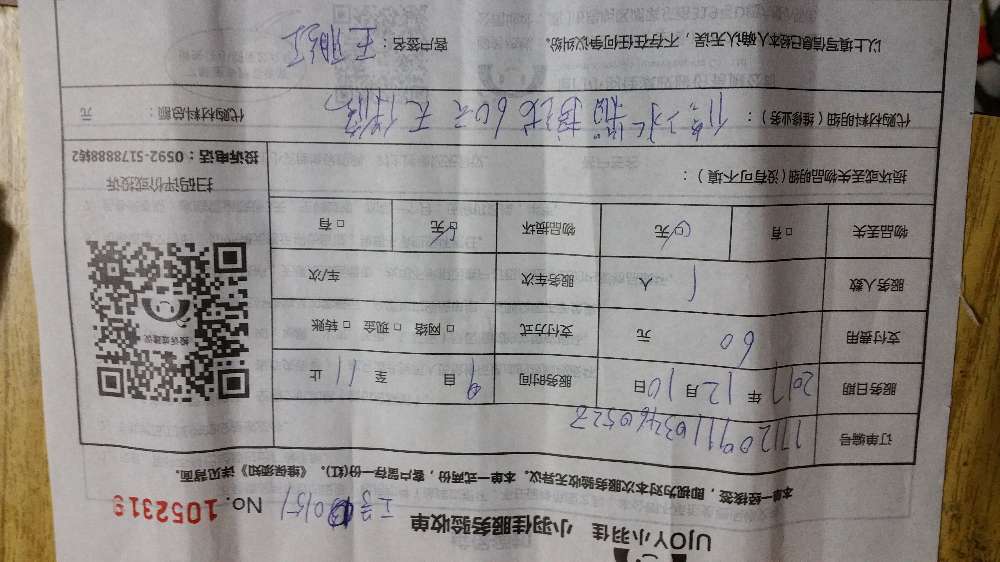 UJOY小羽佳 小羽佳服务验收单
工号 No. 1052319
本单一经核签，即视为对本次服务验收无异议。本单一式两份，客户留存一份(红)。《维保须知》详见背面。
订单编号
服务日期 2017 年 12 月 10 日 服务时间 9 自 至 11 止
支付费用 60 元 支付方式 □ 网络 □ 现金 □ 转账
服务人数 1 人 服务车次 车/次
物品丢失 □ 有 □ 无 物品损坏 □ 无 □ 有
投诉或建议
扫码评价或投诉
投诉电话：0592-5178888转2
损坏或丢失物品明细（没有可不填）：
代购材料明细（维修业务）： 60元 无保修
代购材料总额： 元
以上填写信息已经本人确认无误，不存在任何争议纠纷。 客户签名：